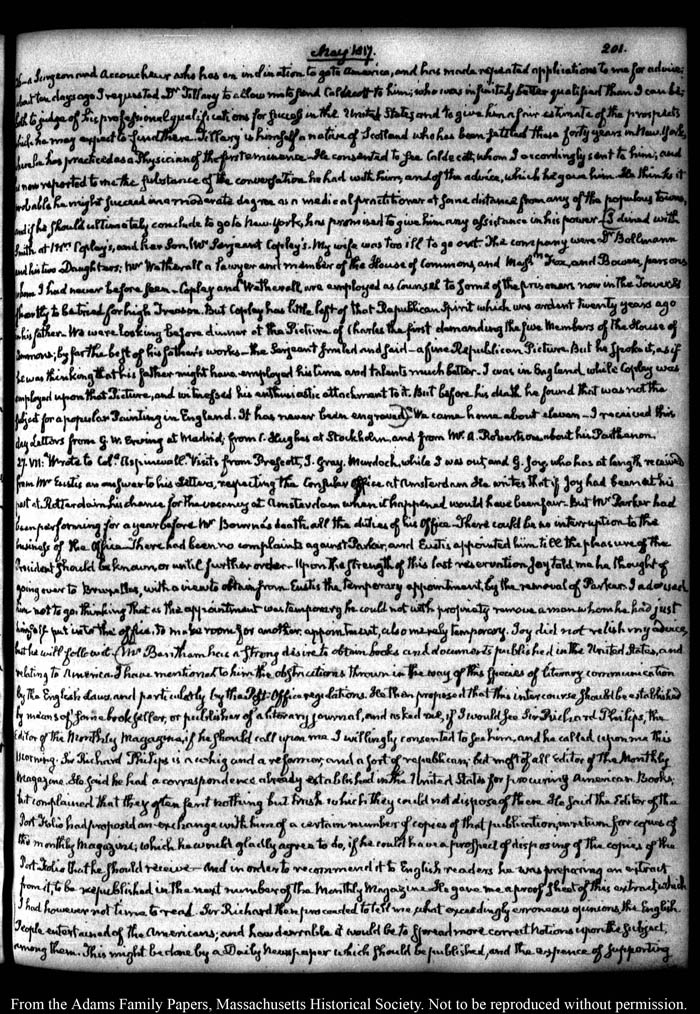 May 1817.
201.
a Surgeon and Accoucheur who has an inclination to go to America, and has made repeated applications to me for advice;
about ten days ago I requested Dr Tillary to allow me to send Caldecott to him; who was infinitely better qualified than I can be;
both to judge of his professional qualifications for success in the United States and to give him a fair estimate of the prospects
which he may expect to find there. Tillary is himself a native of Scotland who has been settled these forty years in New York,
where he has practiced as a Physician of the first eminence. He consented to see Caldecott, whom I accordingly sent to him; and
now reported to me the substance of the conversation he had with him, and of the advice, which he gave him. He thinks it
probable he might succeed in a moderate degree as a medical practitioner at some distance from any of the populous towns,
and if he should ultimately conclude to go to New York, has promised to give him any assistance in his power. I dined with
Smith at Mrs. Copley's, and her Son, Mr Sergeant Copley's. My wife was too ill to go out. The company were Dr Bollmann
and his two Daughters; Mr Wetherall a Lawyer and member of the House of Commons, and Messrs Fox, and Bowen, persons
whom I had never before seen. Copley and Wetherall, are employed as Counsel to some of the prisoners now in the Tower &
shortly to be tried for high Treason. But Copley has little left of that Republican Spirit which was ardent twenty years ago
in his father. We were looking before dinner at the Picture of Charles the first demanding the five Members of the House of
Commons; by far the best of his father's works. The Sergeant smiled and said—a fine Republican Picture. But he spoke it, as if
he was thinking that his father might have employed his time and talents much better. I was in England, while Copley was
employed upon that Picture, and witnessed his enthusiastic attachment to it. But before his death he found that was not the
subject for a popular Painting in England. It has never been engraved. We came home about eleven. I received this
day Letters from G. W. Erving at Madrid, from C. Hughes at Stockholm, and from Mr A. Robertson about his Parthenon.
27. VII: Wrote to Col. Aspinwall. Visits from Prescott, J. Gray. Murdoch, while I was out, and G. Joy, who has at length received
from Mr Eustis an answer to his Letters, respecting the Consular Office at Amsterdam. He writes that if Joy had been at his
post at Rotterdam his chance for the vacancy at Amsterdam when it happened would have been fair. But Mr Parker had
been performing for a year before Mr Bourne's death, all the duties of his Office. There could be no interruption to the
business of the Office. There had been no complaints against Parker, and Eustis appointed him till the pleasure of the
President should be known, or until further order. Upon the strength of this last reservation Joy told me he thought of
going over to Bruxelles, with a view to obtain from Eustis the temporary appointment, by the removal of Parker. I advised
him not to go: thinking that as the appointment was temporary he could not with propriety remove a man whom he had just
himself put into the office, to make room for another appointment, also merely temporary. Joy did not relish my advice,
but he will follow it. Mr Bentham has a strong desire to obtain books and documents published in the United States, and
relating to America. I have mentioned to him the obstructions thrown in the way of this species of literary communication
by the English laws, and particularly by the Post-Office regulations. He then proposed that this intercourse should be established
by means of some bookseller, or publisher of a literary journal, and asked me, if I would see Sir Richard Philips, the
Editor of the Monthly Magazine, if he should call upon me. I willingly consented to see him, and he called upon me this
morning. Sir Richard Philips is a whig and a reformer, and a sort of republican; but most of all Editor of the Monthly
Magazine. He said he had a correspondence already established in the United States for procuring American Books;
but complained that they often sent nothing but trash which they could not dispose of here. He said the Editor of the
Port Folio had proposed an exchange with him of a certain number of copies of that publication, in return for copies of
the monthly Magazine; which he would gladly agree to do, if he could have a prospect of disposing of the copies of the
Port Folio that he should receive. And in order to recommend it to English readers he was preparing an extract
from it, to be republished in the next number of the Monthly Magazine. He gave me a proof sheet of this extract which
I had however not time to read. Sir Richard then proceeded to tell me, what exceedingly erroneous opinions, the English
People entertained of the Americans; and how desirable it would be to spread more correct notions upon the subject,
among them. This might be done by a Daily Newspaper which should be published, and the expence of supporting
From the Adams Family Papers, Massachusetts Historical Society. Not to be reproduced without permission.